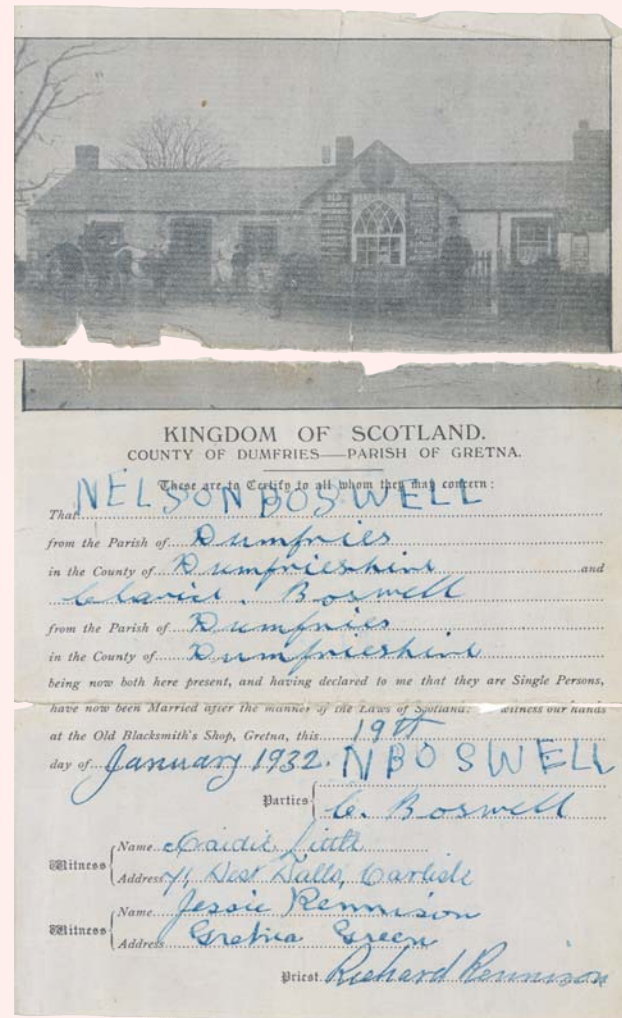 KINGDOM OF SCOTLAND.
COUNTY OF DUMFRIES—PARISH OF GRETNA.
These are to Certify to all whom they may concern:
That NELSON BOSWELL
from the Parish of Dumfries
in the County of Dumfrieshire and
Clarice. Boswell
from the Parish of Dumfries
in the County of Dumfrieshire
being now both here present, and having declared to me that they are Single Persons,
have now been Married after the manner of the Laws of Scotland: witness our hands
at the Old Blacksmith's Shop, Gretna, this 19th
day of January 1932. N BOSWELL
Parties C. Boswell
Witness Name Maidie Little
Address 71, West Walls, Carlisle
Witness Name Jessie Rennison
Address Gretna Green
Priest Richard Rennison